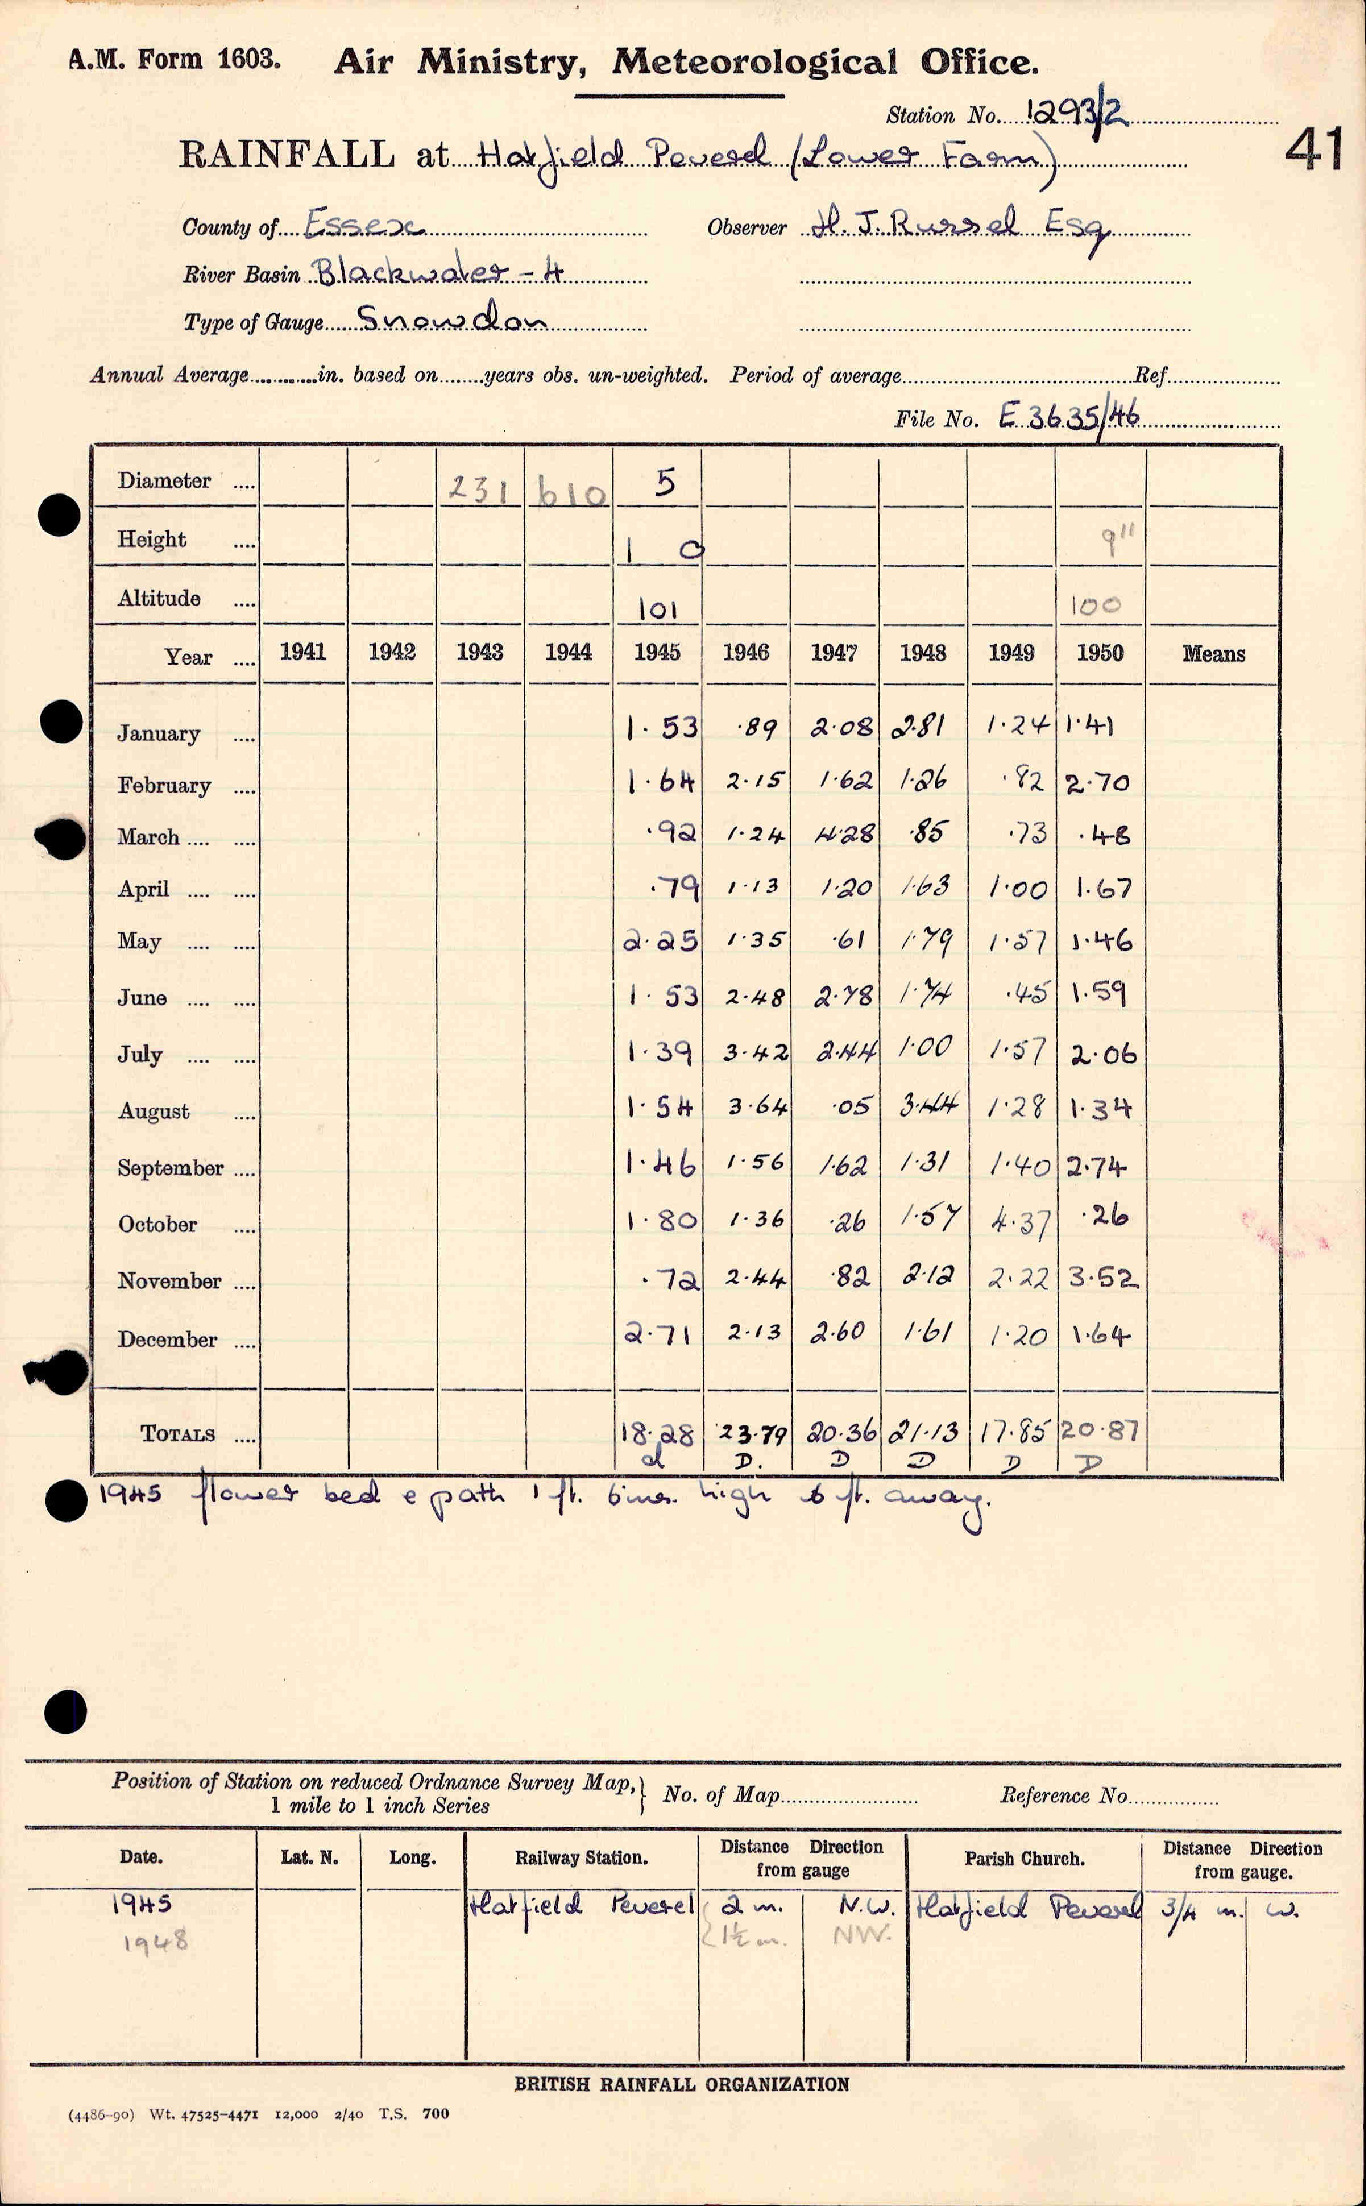 A.M. Form 1603. Air Ministry, Meteorological Office.
Station No. 1293/2
41
RAINFALL at Hatfield Peverel (Lower Farm)
County of Essex Observer H. J. Russel Esq
River Basin Blackwater - 4
Type of Gauge Snowdon
Annual Average............in. based on........years obs. un-weighted. Period of average........Ref........
File No. E 3635/46
Diameter .... 231 610 5
Height .... 1 0 9"
Altitude .... 101 100
Year .... 1941 1942 1943 1944 1945 1946 1947 1948 1949 1950 Means
January .... 1.53 .89 2.08 2.81 1.24 1.41
February .... 1.64 2.15 1.62 1.26 .82 2.70
March .... .... .92 1.24 4.28 .85 .73 .48
April .... .... .79 1.13 1.20 1.63 1.00 1.67
May .... .... 2.25 1.35 .61 1.79 1.57 1.46
June .... .... 1.53 2.48 2.78 1.74 .45 1.59
July .... .... 1.39 3.42 2.44 1.00 1.57 2.06
August .... 1.54 3.64 .05 3.44 1.28 1.34
September .... 1.46 1.56 1.62 1.31 1.40 2.74
October .... 1.80 1.36 .26 1.57 4.37 .26
November .... .72 2.44 .82 2.12 2.22 3.52
December .... 2.71 2.13 2.60 1.61 1.20 1.64
TOTALS .... 18.28 23.79 20.36 21.13 17.85 20.87
d D. D D D D
1945 flower bed & path 1 ft. 6ins. high 6 ft. away.
Position of Station on reduced Ordnance Survey Map, } No. of Map........ Reference No........
1 mile to 1 inch Series
Date. Lat. N. Long. Railway Station. Distance Direction from gauge Parish Church. Distance Direction from gauge.
1945 Hatfield Peverel 2 m. N.W. Hatfield Peverel 3/4 m. W.
1948 1½ m. NW.
BRITISH RAINFALL ORGANIZATION
(4486-90) Wt. 47525-4471 12,000 2/40 T.S. 700